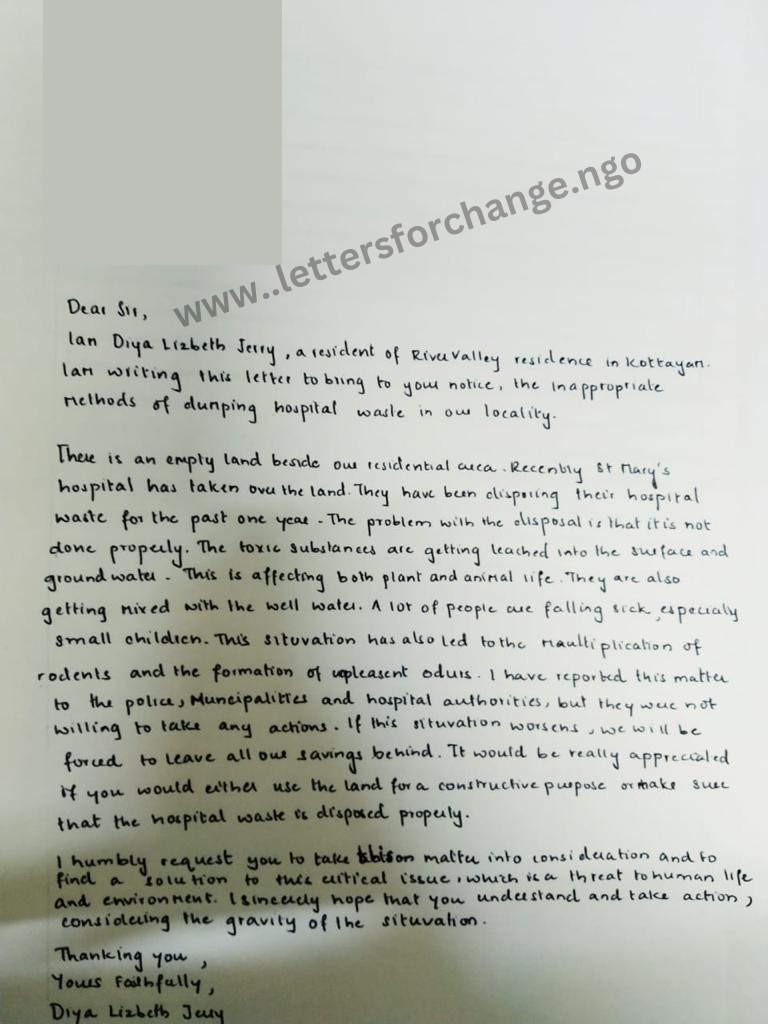 www..lettersforchange.ngo
Dear Sir,
Iam Diya Lizbeth Jerry, a resident of RiverValley residence in Kottayam.
Iam writing this letter to bring to your notice, the inappropriate
methods of dumping hospital waste in our locality.
There is an empty land beside our residential area. Recently St Mary's
hospital has taken over the land. They have been disposing their hospital
waste for the past one year. The problem with the disposal is that it is not
done properly. The toxic substances are getting leached into the surface and
ground water. This is affecting both plant and animal life. They are also
getting mixed with the well water. A lot of people are falling sick, especially
small children. This situvation has also led to the multiplication of
rodents and the formation of unpleasent odurs. I have reported this matter
to the police, Muncipalities and hospital authorities, but they were not
willing to take any actions. If this situvation worsens, we will be
forced to leave all our savings behind. It would be really appreciated
if you would either use the land for a constructive purpose or make sure
that the hospital waste is disposed properly.
I humbly request you to take matter into consideration and to
find a solution to this critical issue, which is a threat to human life
and environment. I sincerely hope that you understand and take action,
considering the gravity of the situvation.
Thanking you,
Yours Faithfully,
Diya Lizbeth Jerry